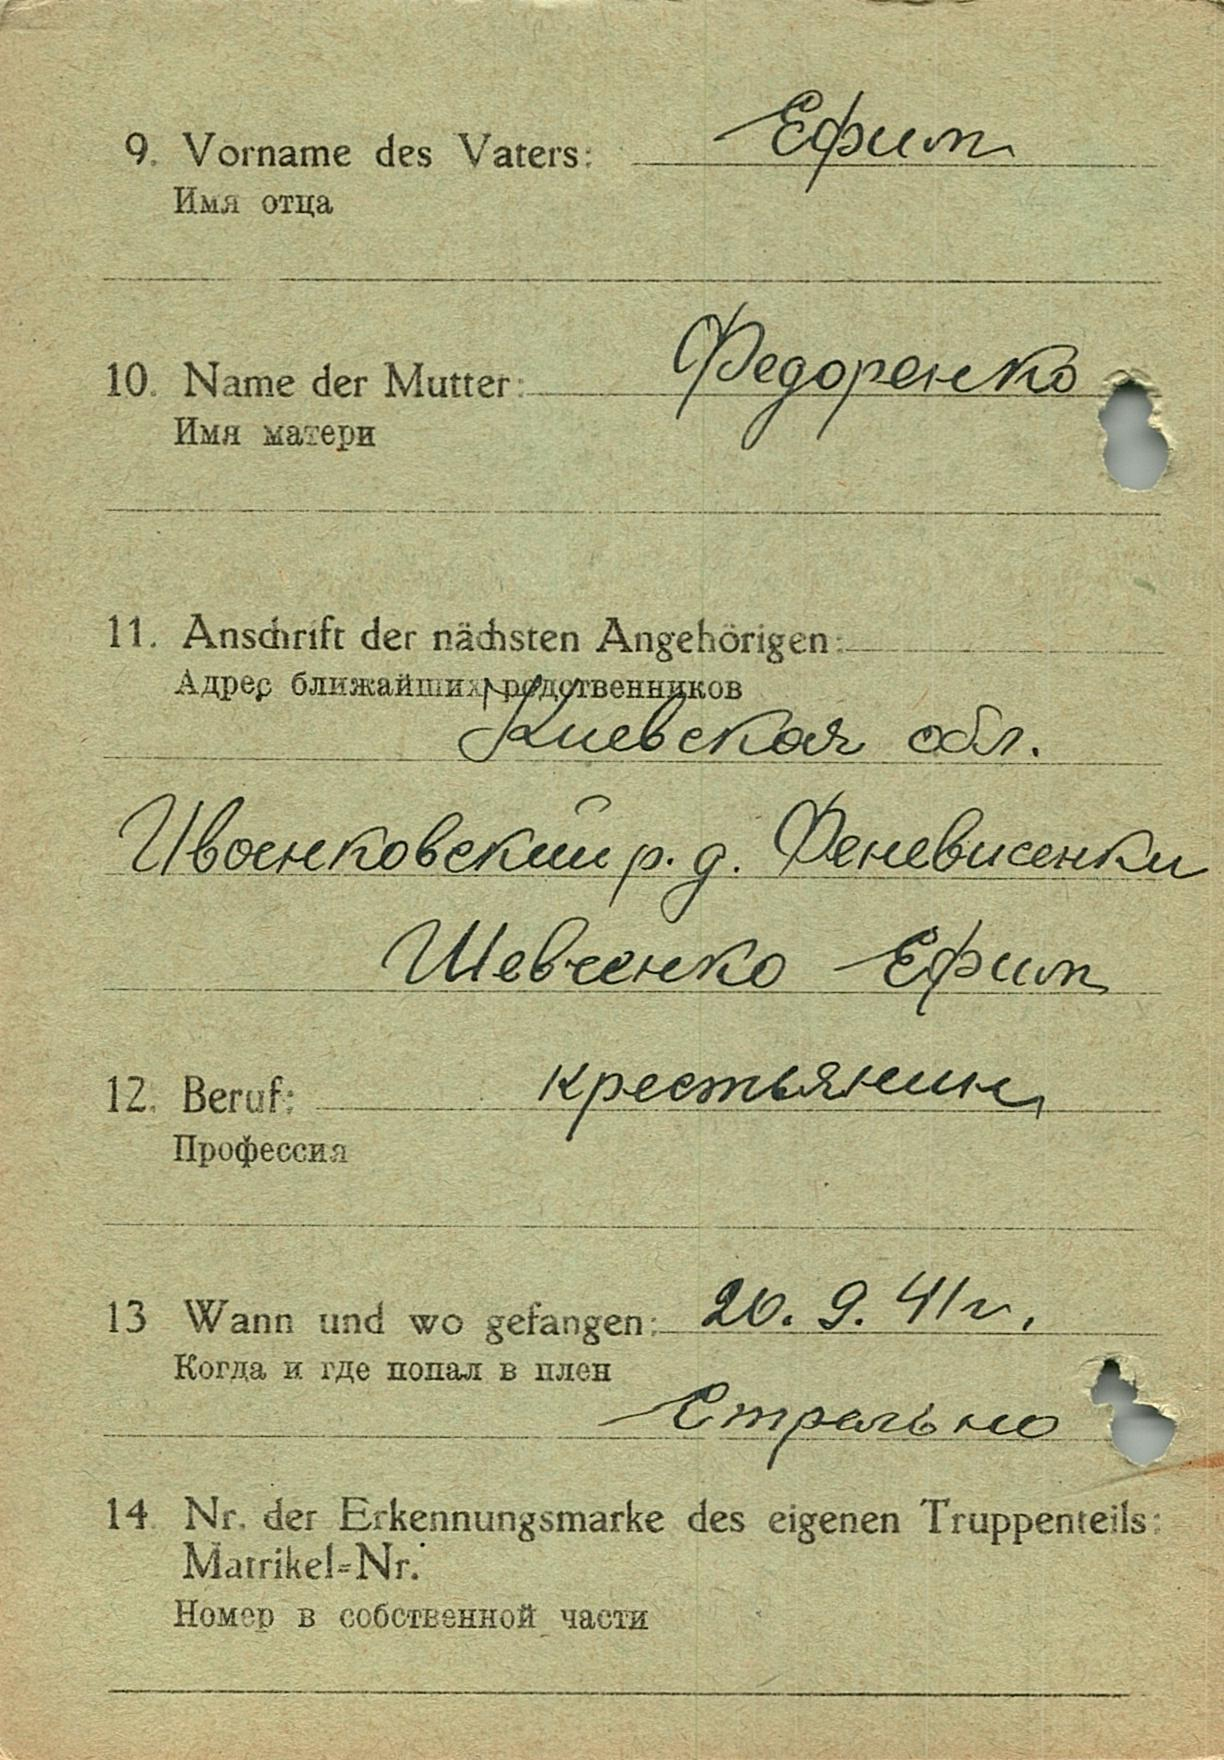 9. Vorname des Vaters: Ефим
Имя отца
10. Name der Mutter: Федоренко
Имя матери
11. Anschrift der nächsten Angehörigen:
Адрес ближайших родственников
Киевская обл.
Ивоенковский р. д. Феневисенки
Шевченко Ефим
12. Beruf: крестьянин
Профессия
13 Wann und wo gefangen: 20. 9. 41 г.
Когда и где попал в плен
Стрельно
14. Nr. der Erkennungsmarke des eigenen Truppenteils:
Matrikel-Nr.
Номер в собственной части